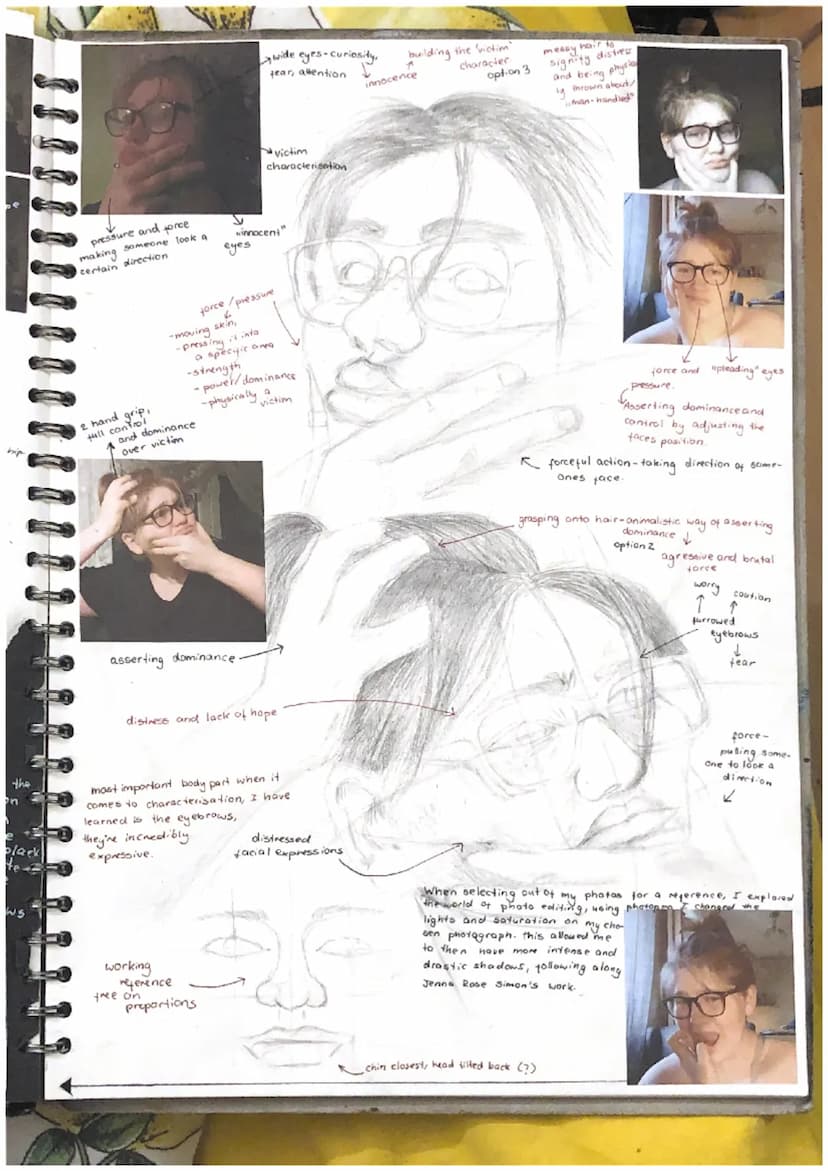 wide eyes-curiosity,
fear, attention
innocence
building the 'victim'
character
option 3
messy hair to
signify distress
and being physica
ly thrown about/
"man-handled"
victim
characterisation
pressure and force
making someone look a
certain direction
"innocent"
eyes
force/pressure
-moving skin,
-pressing it into
a specific area
-strength
-power/dominance
-physically a
victim
force and
pressure.
"pleading" eyes
Asserting dominance and
control by adjusting the
faces position.
2 hand grip,
full control
and dominance
over victim
forceful action-taking direction of some-
ones face.
grasping onto hair-animalistic way of asserting
dominance
option 2
agressive and brutal
force
worry
caution
furrowed
eyebrows
fear
asserting dominance
distress and lack of hope
force-
pulling some-
one to look a
direction
most important body part when it
comes to characterisation, I have
learned is the eyebrows,
they're incredibly
expressive.
distressed
facial expressions
When selecting out of my photos for a reference, I explored
the world of photo editing, using I changed the
lights and saturation on my cho-
sen photograph. this allowed me
to then have more intense and
drastic shadows, following along
Jenna Rose Simon's work.
working
reference
free on
proportions
chin closest, head tilted back (?)
the
on
black
te
ws